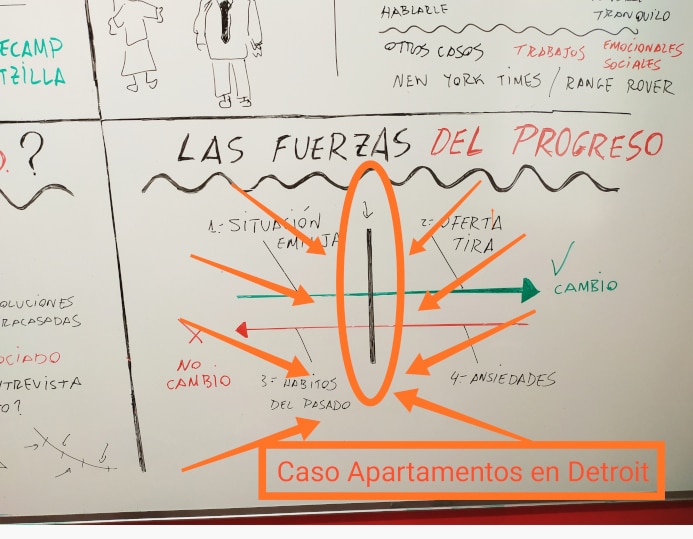 HABLARLE
TRANQUILO
OTROS CASOS TRABAJOS EMOCIONALES
SOCIALES
NEW YORK TIMES / RANGE ROVER
ECAMP
TZILLA
O. ?
LAS FUERZAS DEL PROGRESO
1.- SITUACIÓN
EMPUJA
2.- OFERTA
TIRA
CAMBIO
NO
CAMBIO
3.- HABITOS
DEL PASADO
4.- ANSIEDADES
OLUCIONES
RACASADAS
OCIADO
NTREVISTA
O?
Caso Apartamentos en Detroit